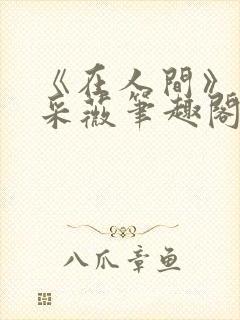 《在人間》
采薇筆趣閣
八爪章鱼